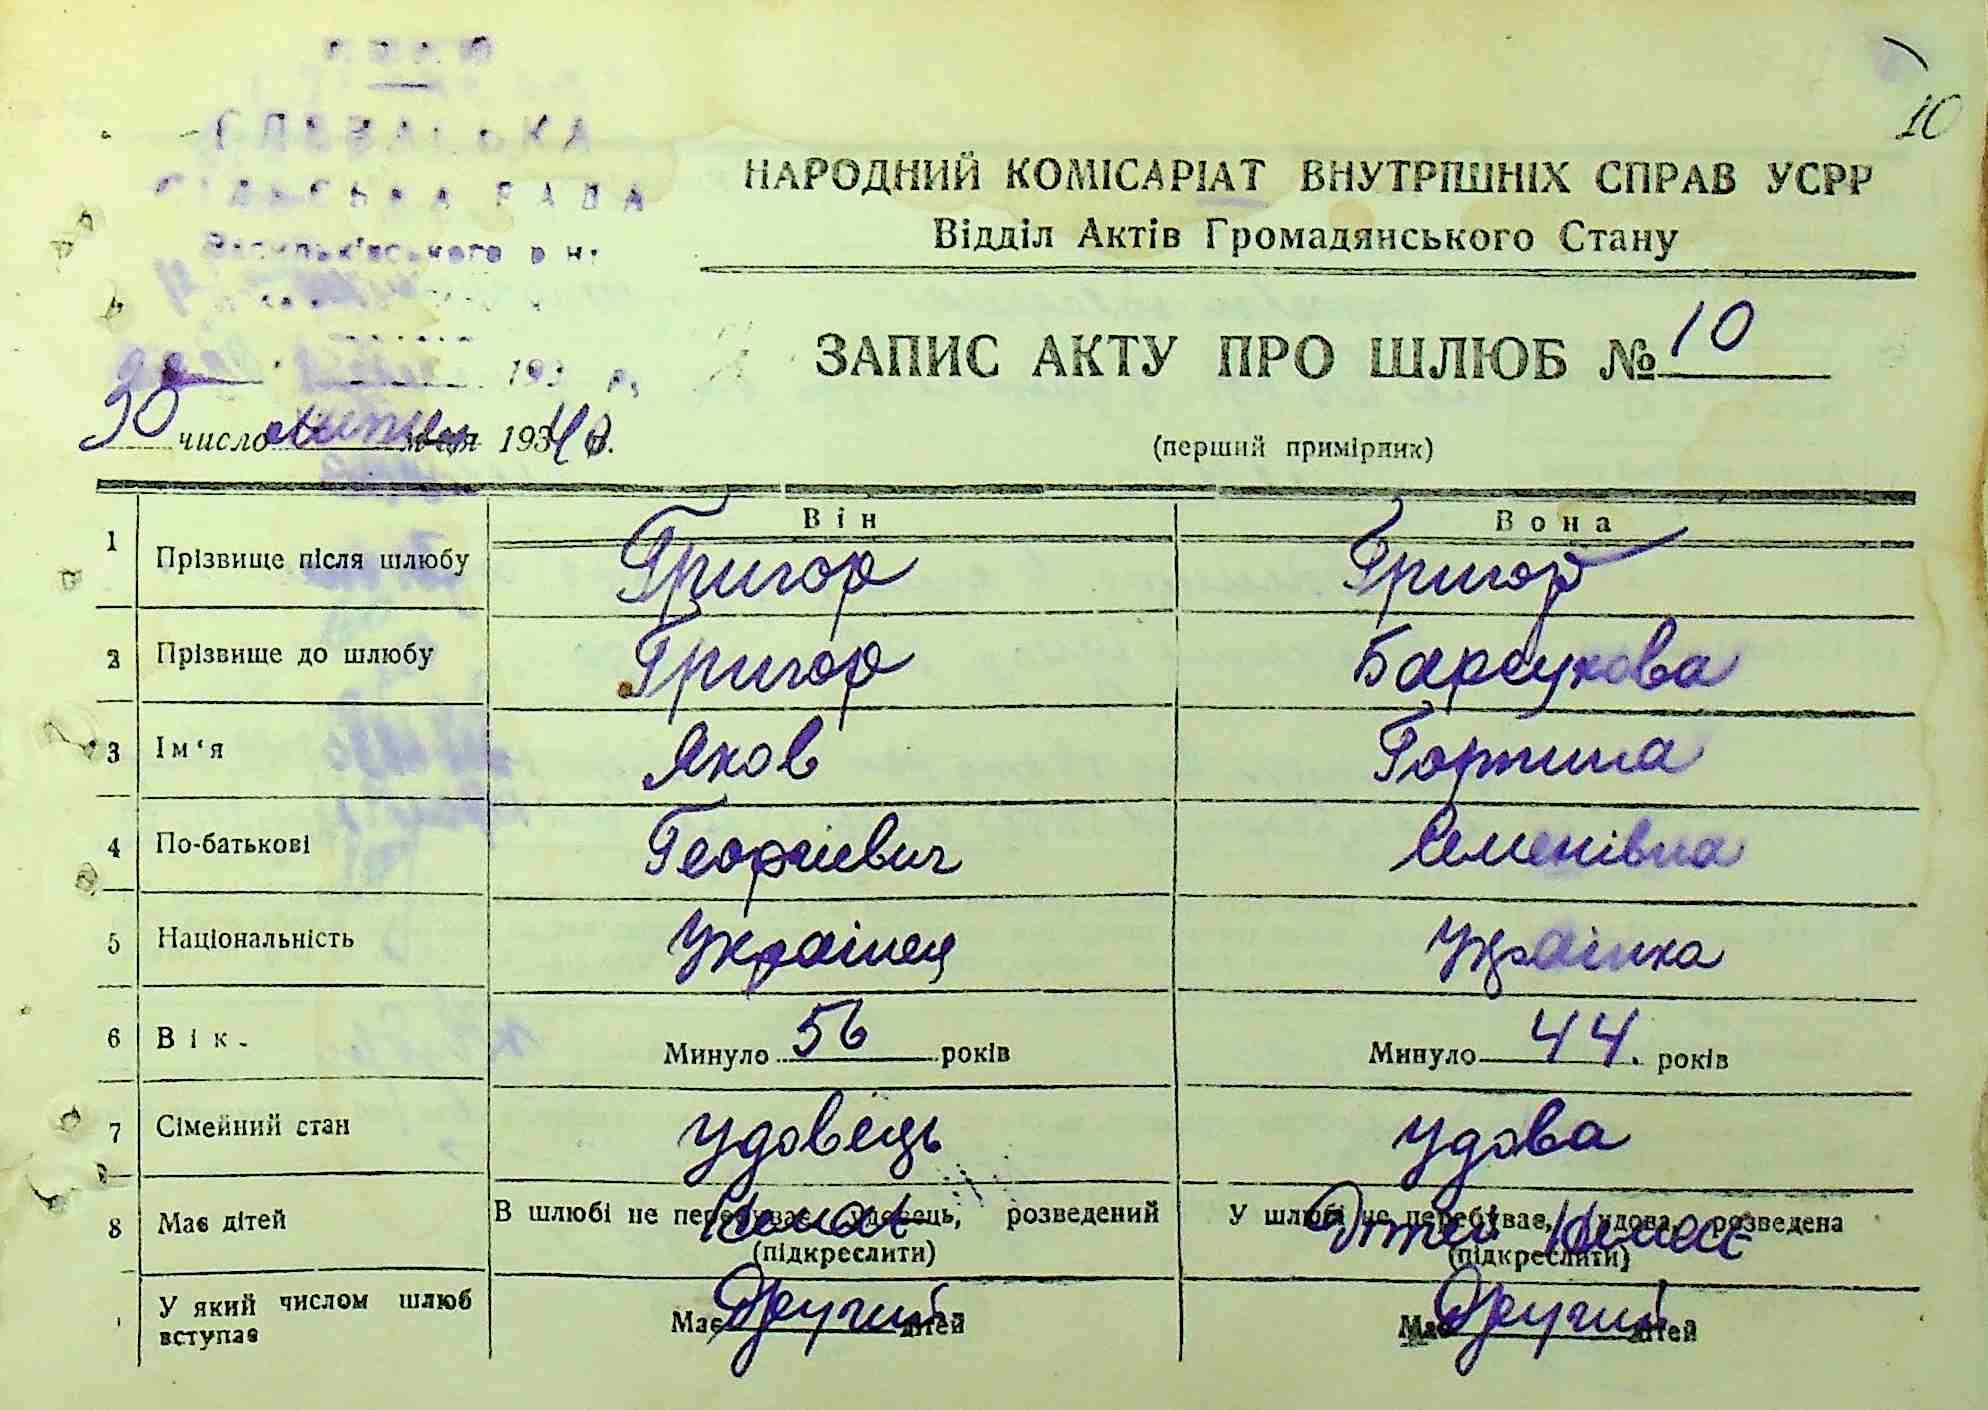 10
СІЛЬСЬКА РАДА
Васильк'вського р н
НАРОДНИЙ КОМІСАРІАТ ВНУТРІШНІХ СПРАВ УСРР
Відділ Актів Громадянського Стану
ЗАПИС АКТУ ПРО ШЛЮБ № 10
193 р,
30 число липня м-ця 1940 р.
(перший примірник)
Він Вона
1 Прізвище після шлюбу Григор Григор
2 Прізвище до шлюбу Григор Барсукова
3 Ім'я Яков Горпина
4 По-батькові Георгіевич Семенівна
5 Національність Українец Українка
6 Вік. Минуло 56 років Минуло 44. років
7 Сімейний стан удовець удова
8 Має дітей В шлюбі не перебуває, удовець, розведений У шлюбі не перебуває, удова, розведена
Немає Дітей Немає
(підкреслити) (підкреслити)
У який числом шлюб вступає Має Другий дітей Має Другий дітей